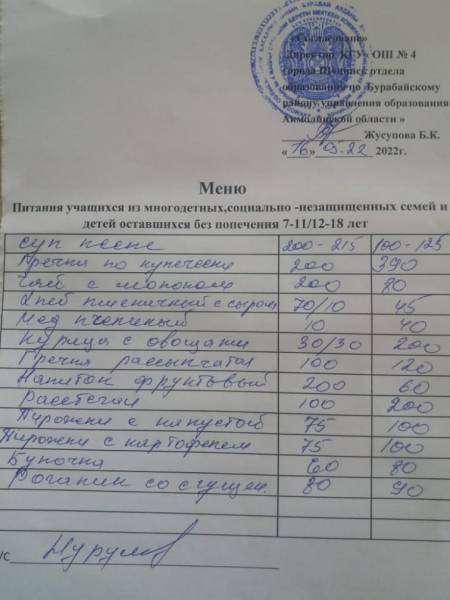 «Согласовано»
Директор КГУ« ОШ № 4
города Щучинск отдела
образования по Бурабайскому
району управления образования
Акмолинской области »
Жусупова Б.К.
« 16 » 05.22 2022г.
Меню
Питания учащихся из многодетных,социально -незащищенных семей и
детей оставшихся без попечения 7-11/12-18 лет
суп 200-215 100-125
Гречка по купечески 200 390
Чай с молоком 200 80
Хлеб пшеничный с сыром 70/10 45
Мед пчелиный 10 40
Курица с овощами 30/30 200
Гречка рассыпчатая 100 120
Напиток фруктовый 200 60
Расстегаи 100 200
Пирожки с капустой 75 100
Пирожки с картофелем 75 100
Булочка 60 80
Рогалик со сгущен. 80 90